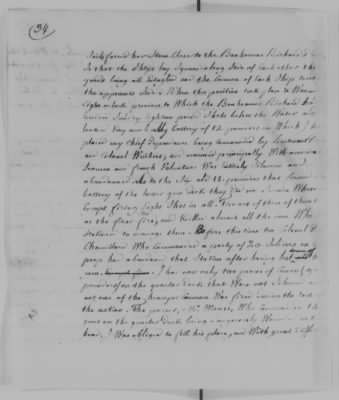 (34)
Sails forced her Stern close to the Bonhomme Richard's
So that the Ships lay Square along Side of Each other the
yards being all Entangled and the Cannon of Each Ship touch
the opponents Side. When this position took place it was
Eight oClock previous to Which the Bonhomme Richard
received Sundry eighteen pound Shots below the Water and
leaked Very much. My battery of 12 pounders on Which I
placed my Chief dependance being Commanded by Lieutenant
and Colonel Weibert, and manned principally With american
Seamen and french Volunteers Was Entirely Silenced and
abandoned. As to the Six old 18 pounders that formed
battery of the lower gun deck they did no Service Whatever
Except firing Eight Shot in all. Two out of three of them
at the first fire, and Killed almost all the men Who
Stationed to manage them. Before this time too Colonel
Chamillard Who Commanded a party of 20 Soldiers on
poop had abandoned that Station after having lost some of
men. I had now only two pieces of Cannon
pounders) on the quarter Deck that Were not Silenced
not one of the heavyer Cannon Was fired during the rest
the action. The purser, Mr Mease, Who Commanded the
guns on the quarter Deck being dangerously Wounded in
head, I Was obliged to fill his place, and With great